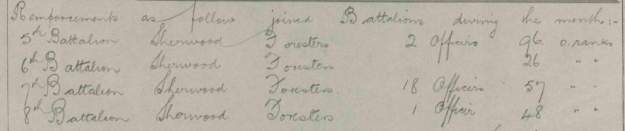 Reinforcements as follow joined Battalions during the month:-
5th Battalion Sherwood Foresters 2 Officers 96 o.ranks
6th Battalion Sherwood Foresters 26 " "
7th Battalion Sherwood Foresters 18 Officers 57 " "
8th Battalion Sherwood Foresters 1 Officer 48 " "